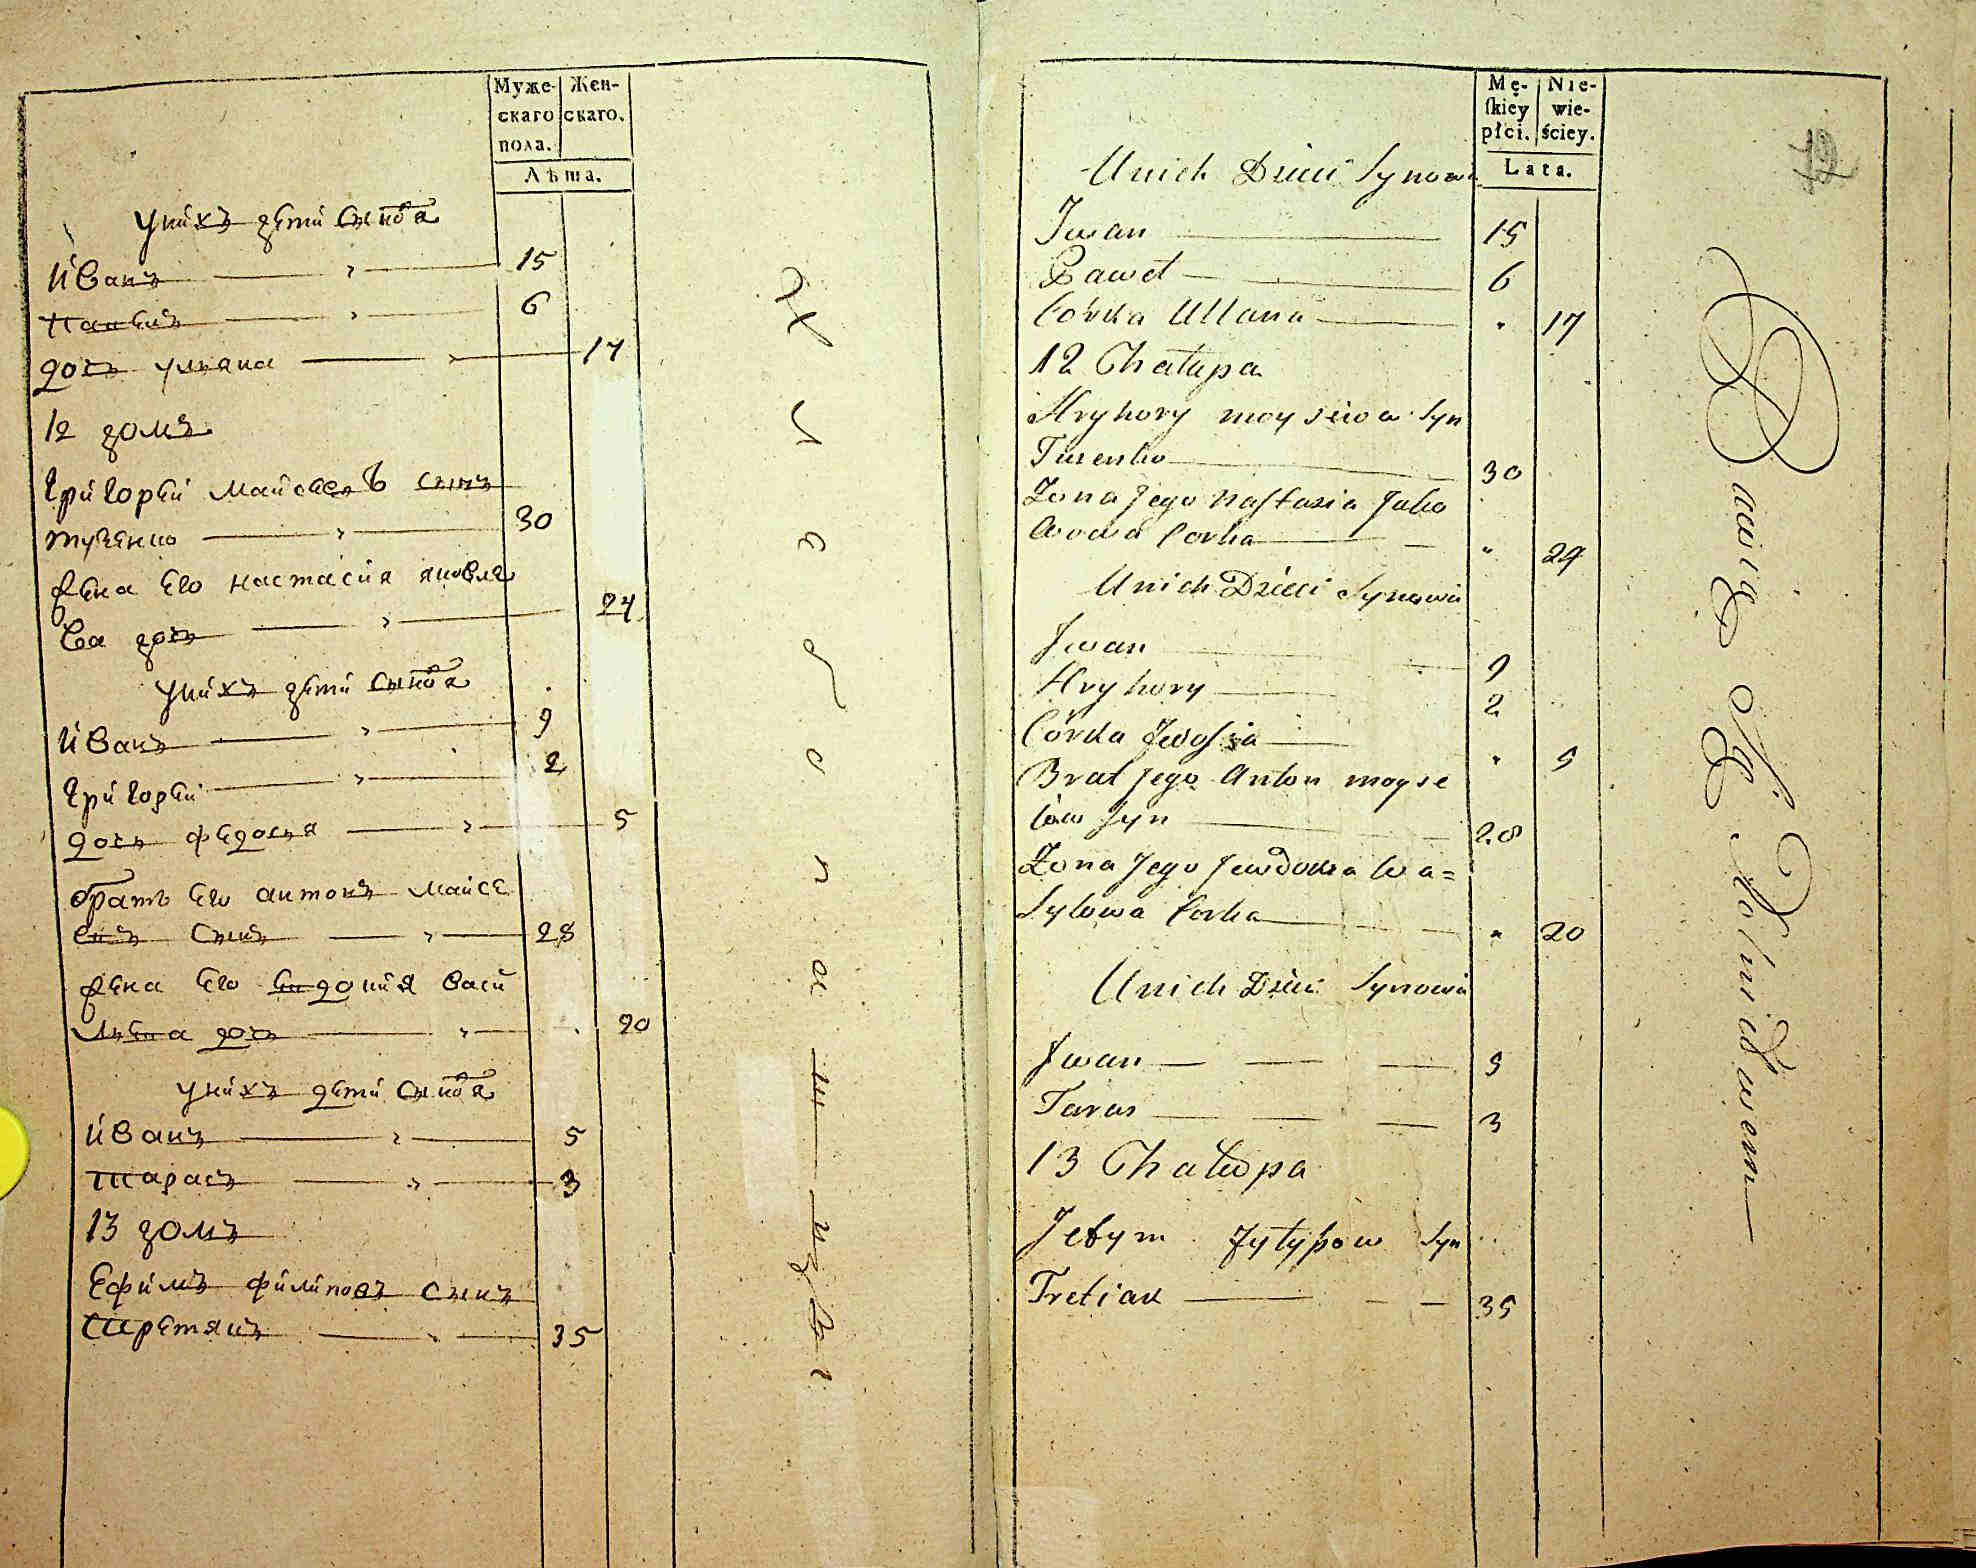 Муже-
скаго
пола.
Жен-
скаго.
Лѣта.
унихъ дѣти сынова
Иванъ 15
Павелъ 6
дочь улияна 17
12 домъ
Григорѣй Майсеевъ сынъ
тусенко 30
жена его настасия яковле
ва дочь 24
унихъ дѣти сынова
Иванъ 9
Григорѣй 2
дочь федосья 5
братъ его антонъ майсе
евъ сынъ 28
жена его евдокия васи
льева дочь 20
унихъ дѣти сынова
Иванъ 5
тарасъ 3
13 домъ
Ефимъ филиповъ сынъ
Третякъ 35
хлебопашцы
Mę-
skiey
płci.
Nie-
wie-
ściey.
Lata.
12
Unich Dzieci Synowie
Jwan 15
Paweł 6
Córka Ullana 17
12 Chałupa
Hryhory moysiiow Syn
Tusenko 30
Żona Jego Nastazia Jako
wowa Corka 24
Unich Dzieci Synowie
Jwan 9
Hryhory 2
Córka Jwdosia 5
Brat Jego Anton moyse
iow Syn 28
Żona Jego Jewdokia Wa=
sylowa Corka 20
Unich Dzieci Synowie
Jwan 5
Taras 3
13 Chałupa
Jefym Fyłypow Syn
Tretiak 35
Bawią Się Rolnictwem